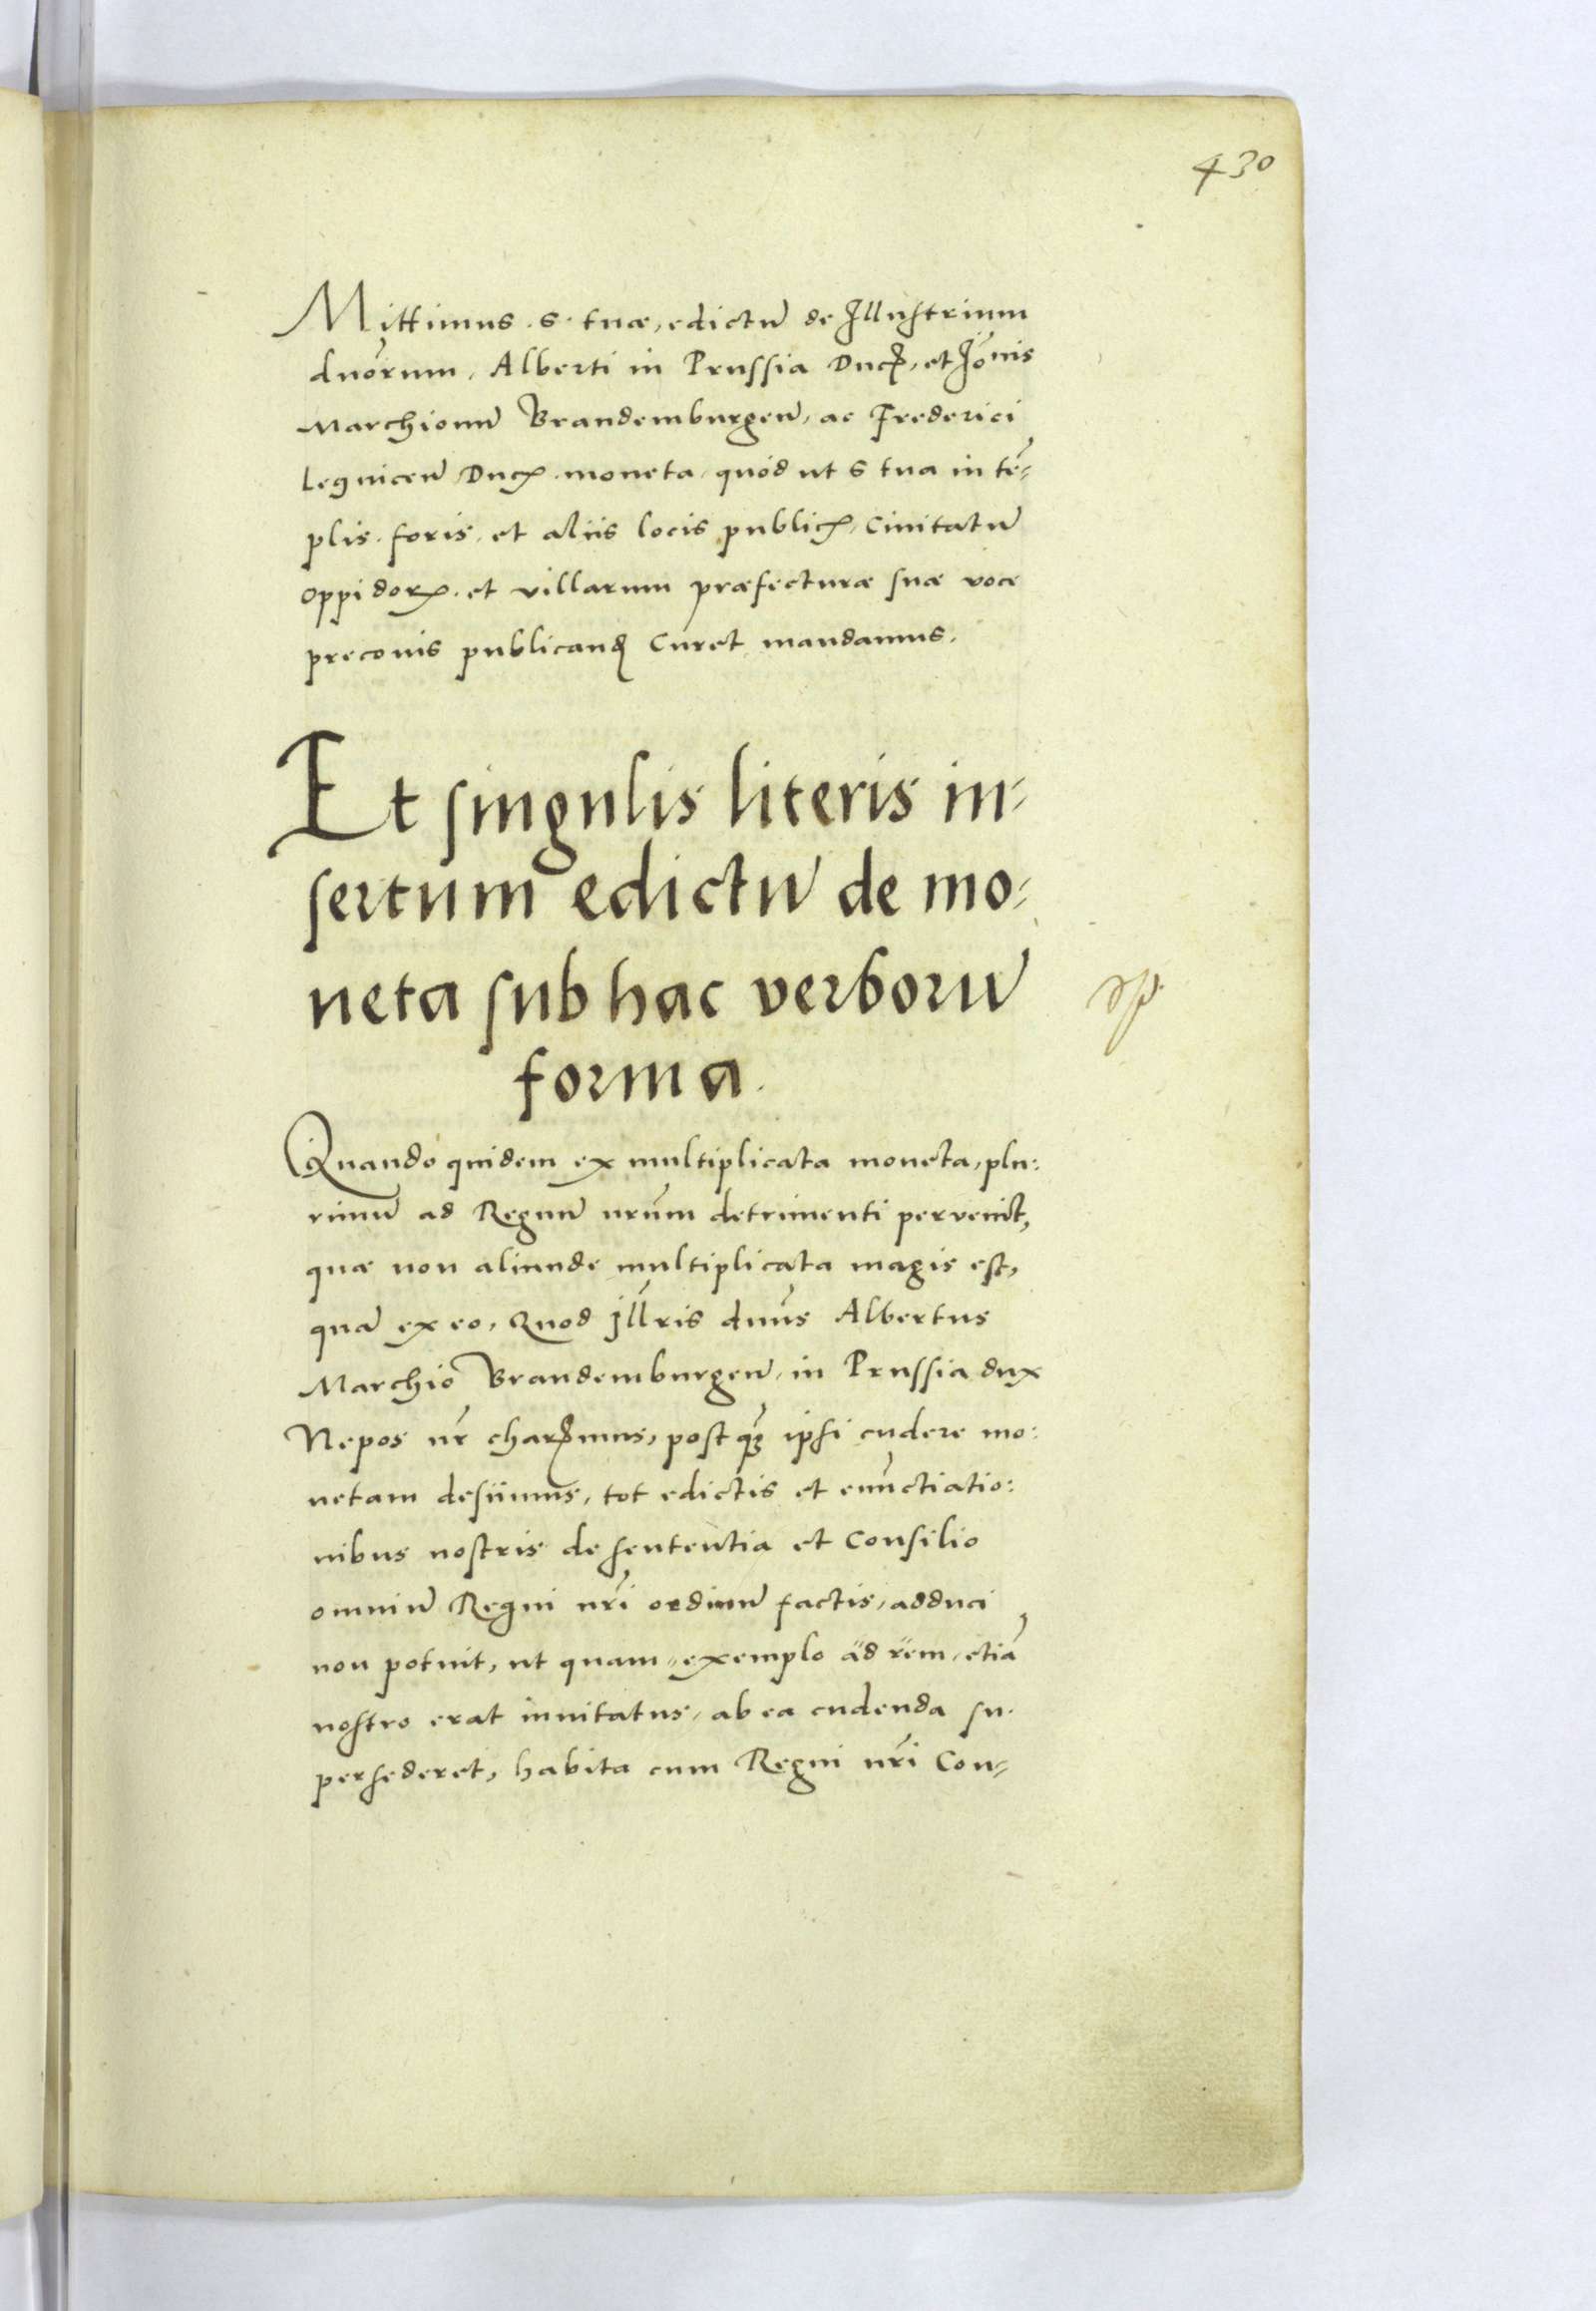 430
Mittimus . S . tuæ, edictū de Illustrium
dnōrum, Alberti in Prussia Duc̨, et Ioīnis
Marchionū Brandemburgeñ, ac Frederici
Legniceñ Duc̨ . moneta, quód ut S tua in tē-
plis . foris, et aliis locis public̨, Ciuitatū
oppidorꝝ, et villarum præfecturæ suæ voce
preconis publicand̨ Curet mandamus.
Et singulis literis in-
sertum edictū de mo-
neta sub hac verborū
forma.
Quando quidem ex multiplicata moneta, plu:
rimū ad Regnū nr̄um detrimenti pervenit,
quæ non aliunde multiplicata magis est,
quā ex eo, Quod Ill̄ris dn̄us Albertus
Marchio Brandemburgeñ, in Prussia dux
Nepos nr̄ char̄mus, post q̄ꝫ ipsi cudere mo:
netam desiimus, tot edictis et enūctiatio:
nibus nostris de sententia et Consilio
omniū Regni nr̄i ordinū factis, adduci
non potuit, ut quam exemplo ad rem, etiā
nostro erat inuitatus, ab ea cudenda su-
persederet, habita cum Regni nr̄i Con-